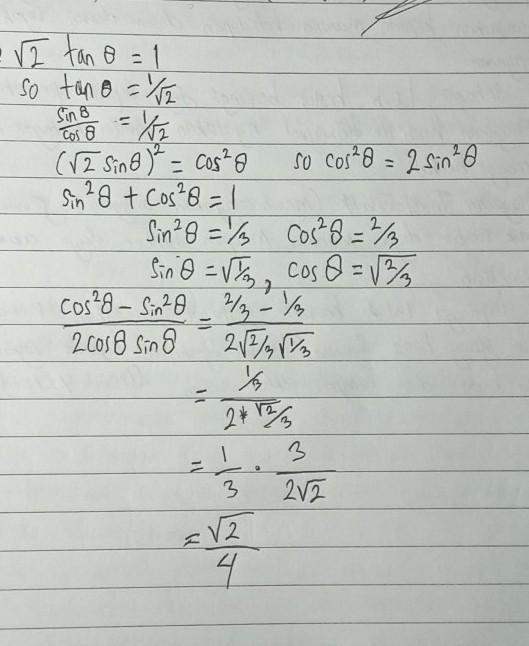 √2 tan θ = 1
so tan θ = 1/√2
sinθ/cosθ = 1/√2
(√2 sinθ)² = cos²θ so cos²θ = 2 sin²θ
sin²θ + cos²θ = 1
sin²θ = 1/3 cos²θ = 2/3
sin θ = √(1/3), cos θ = √(2/3)
(cos²θ - sin²θ)/(2cosθ sinθ) = (2/3 - 1/3)/(2√(2/3)√(1/3))
= (1/3)/(2*√2/3)
= 1/3 · 3/(2√2)
= √2/4